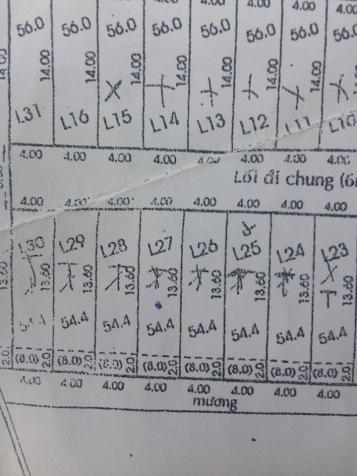 56.0 56.0 56.0 56.0 56.0 56.0 56.0
14.00 14.00 14.00 14.00 14.00 14.00 14.00 14.00
L31 L16 L15 L14 L13 L12 L11 L10
4.00 4.00 4.00 4.00 4.00 4.00 4.00 4.00
Lối đi chung
4.00 4.00 4.00 4.00 4.00 4.00 4.00 4.00
L30 L29 L28 L27 L26 L25 L24 L23
13.60 13.60 13.60 13.60 13.60 13.60 13.60 13.60
54.4 54.4 54.4 54.4 54.4 54.4 54.4
2.0 (8.0) 2.0 (8.0) 2.0 (8.0) 2.0 (8.0) 2.0 (8.0) 2.0 (8.0) 2.0 (8.0) 2.0 (8.0) 2.0
4.00 4.00 4.00 4.00 4.00 4.00 4.00 4.00
mương